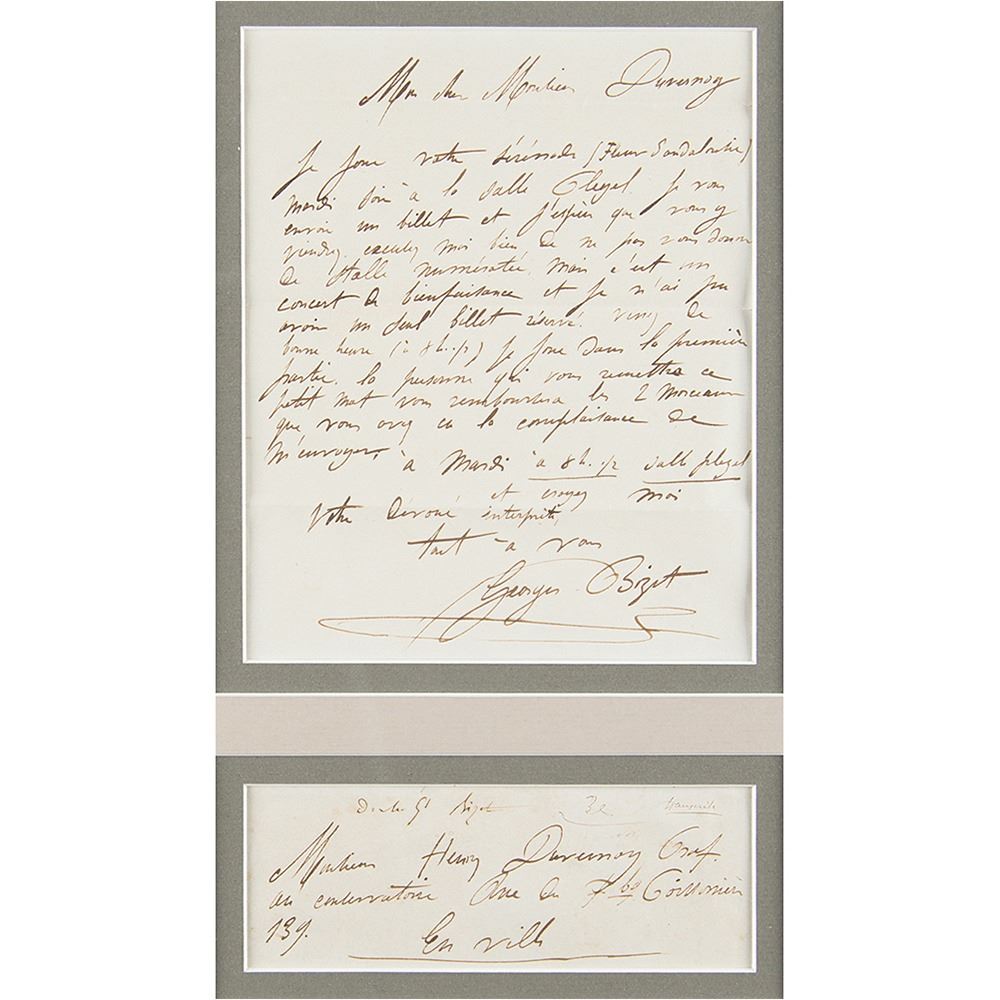 Mon cher Monsieur Duvernoy
Je joue votre sérénade (Fleur Sandalouise)
mardi soir à la salle Pleyel. Je vous
envoie un billet et j'espère que vous y
viendrez. excusez moi bien de ne pas vous donner
de stalle numérotée, mais c'est un
concert de bienfaisance et je n'ai pu
avoir un seul billet réservé. venez de
bonne heure (à 8 h. 1/2) je joue dans la première
partie. la personne qui vous remettra ce
petit mot vous remboursera les 2 morceaux
que vous avez eu la complaisance de
m'envoyer, à Mardi à 8 h. 1/2 salle pleyel
et croyez moi
votre dévoué interprète,
tout à vous
Georges Bizet
Bizet 32
Monsieur Henry Duvernoy Prof.
au conservatoire Rue du F. bg Poissonnière
139.
En ville